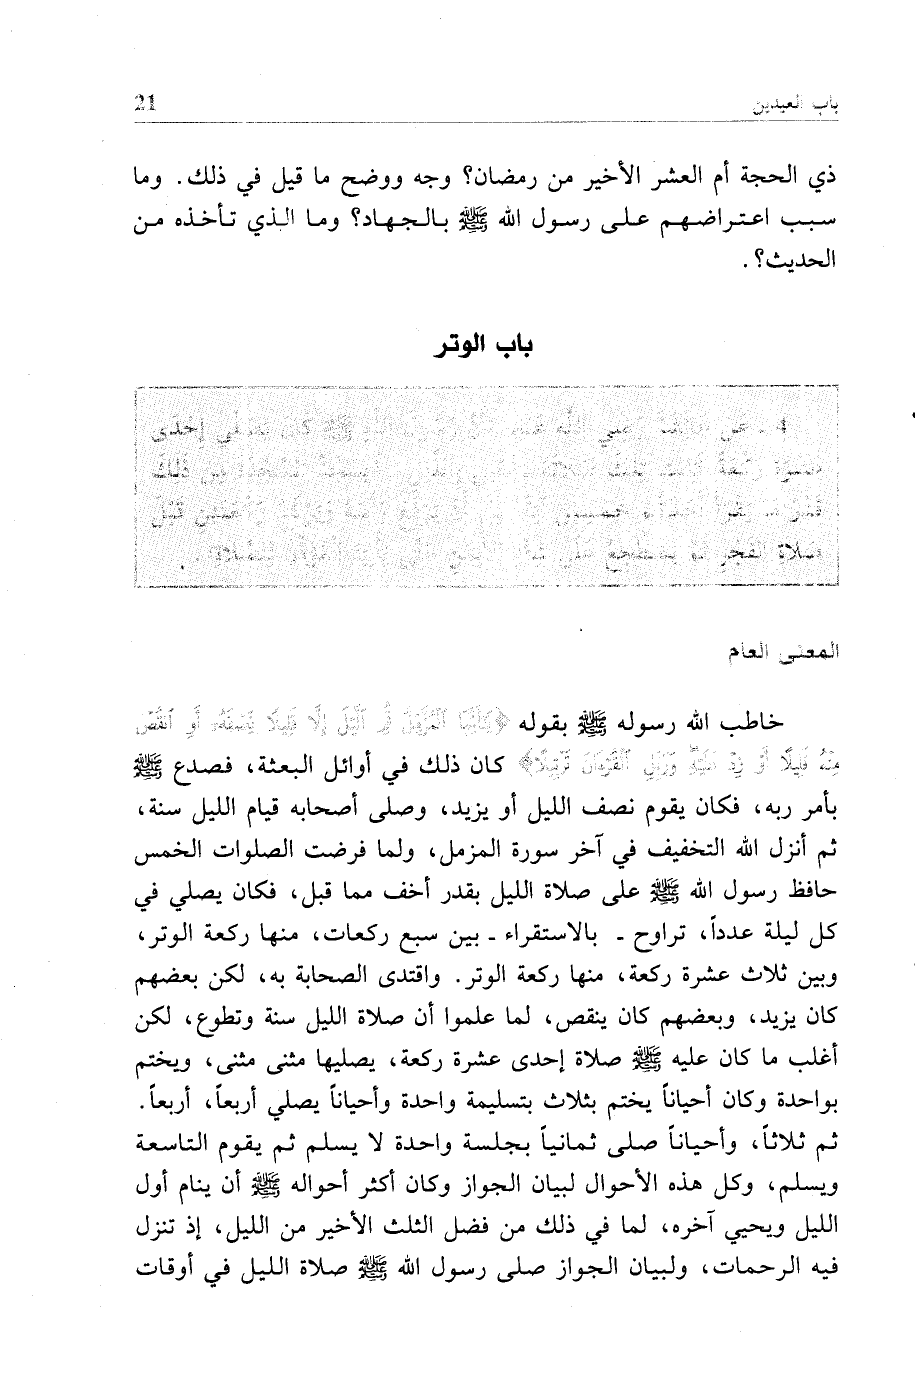 باب العيدين 21
ذي الحجة أم العشر الأخير من رمضان؟ وجه ووضح ما قيل في ذلك. وما
سبب اعتراضهم على رسول الله ﷺ بالجهاد؟ وما الذي تأخذه من
الحديث؟.
باب الوتر
4 - عن الله ﷺ كان إحدى
ركعة ذلك
قبل
صلاة الفجر
المعنى العام
خاطب الله رسوله ﷺ بقوله ﴿يَا أَيُّهَا الْمُزَّمِّلُ قُمِ اللَّيْلَ إِلَّا قَلِيلًا نِصْفَهُ أَوِ انْقُصْ
مِنْهُ قَلِيلًا أَوْ زِدْ عَلَيْهِ وَرَتِّلِ الْقُرْآنَ تَرْتِيلًا﴾ كان ذلك في أوائل البعثة، فصدع ﷺ
بأمر ربه، فكان يقوم نصف الليل أو يزيد، وصلى أصحابه قيام الليل سنة،
ثم أنزل الله التخفيف في آخر سورة المزمل، ولما فرضت الصلوات الخمس
حافظ رسول الله ﷺ على صلاة الليل بقدر أخف مما قبل، فكان يصلي في
كل ليلة عدداً، تراوح - بالاستقراء - بين سبع ركعات، منها ركعة الوتر،
وبين ثلاث عشرة ركعة، منها ركعة الوتر. واقتدى الصحابة به، لكن بعضهم
كان يزيد، وبعضهم كان ينقص، لما علموا أن صلاة الليل سنة وتطوع، لكن
أغلب ما كان عليه ﷺ صلاة إحدى عشرة ركعة، يصليها مثنى مثنى، ويختم
بواحدة وكان أحياناً يختم بثلاث بتسليمة واحدة وأحياناً يصلي أربعاً، أربعاً.
ثم ثلاثاً، وأحياناً صلى ثمانياً بجلسة واحدة لا يسلم ثم يقوم التاسعة
ويسلم، وكل هذه الأحوال لبيان الجواز وكان أكثر أحواله ﷺ أن ينام أول
الليل ويحيي آخره، لما في ذلك من فضل الثلث الأخير من الليل، إذ تنزل
فيه الرحمات، ولبيان الجواز صلى رسول الله ﷺ صلاة الليل في أوقات